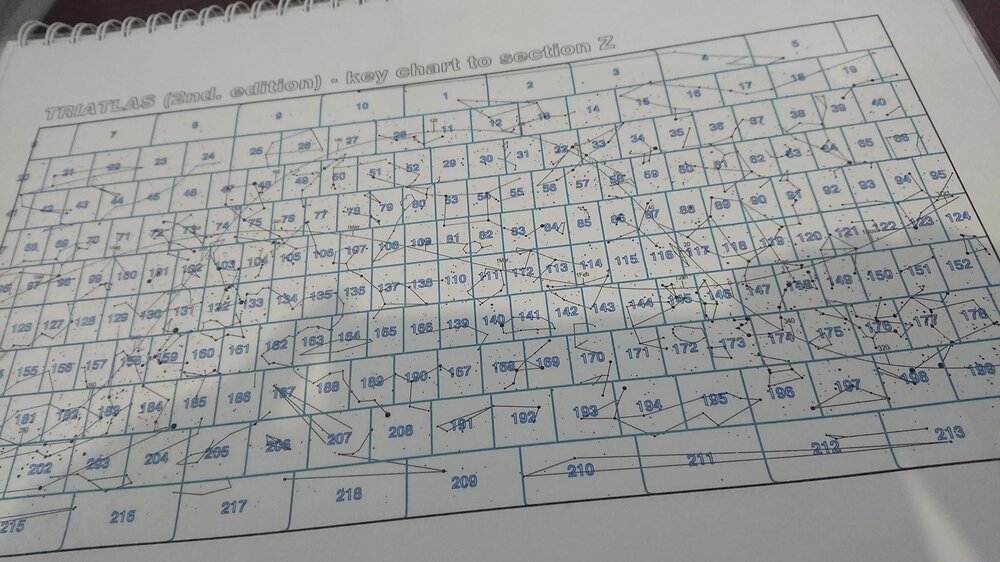 TRIATLAS (2nd. edition) - key chart to section Z
7 8 9 10 1 2 3 4 5
21 22 23 24 25 26 27 28 11 12 13 14 15 16 17 18 19
42 43 44 45 46 47 48 49 50 51 52 29 30 31 32 33 34 35 36 37 38 39 40
68 69 70 71 72 73 74 75 76 77 78 79 80 53 54 55 56 57 58 59 60 61 62 63 64 65 66
97 98 99 100 101 102 103 104 105 106 107 108 109 81 82 83 84 85 86 87 88 89 90 91 92 93 94 95
126 127 128 129 130 131 132 133 134 135 136 137 138 110 111 112 113 114 115 116 117 118 119 120 121 122 123 124
155 156 157 158 159 160 161 162 163 164 165 166 139 140 141 142 143 144 145 146 147 148 149 150 151 152
181 182 183 184 185 186 187 188 189 190 167 168 169 170 171 172 173 174 175 176 177 178
202 203 204 205 206 207 208 191 192 193 194 195 196 197 198 199
215 216 217 218 209 210 211 212 213